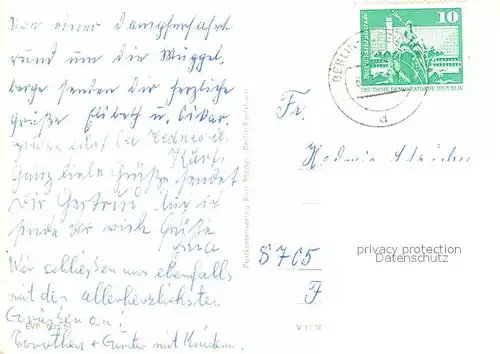 Von einer Dampferfahrt
rund um die Müggel-
berge senden dir herzliche
Grüße Elsbeth u. Oskar.
Kurt.
Ganz liebe Grüße sendet
Dir Gertrud. Auch ich
sende dir viele Grüße
Wir schließen uns ebenfalls
mit den allerherzlichsten
Grüßen an!
Dorothea + Günter mit Kindern.
EVP
Postkartenverlag Kurt Mader, Berlin
V 11
BERLIN
a
10
DEUTSCHE DEMOKRATISCHE REPUBLIK
Fr.
8705
F
privacy protection
Datenschutz